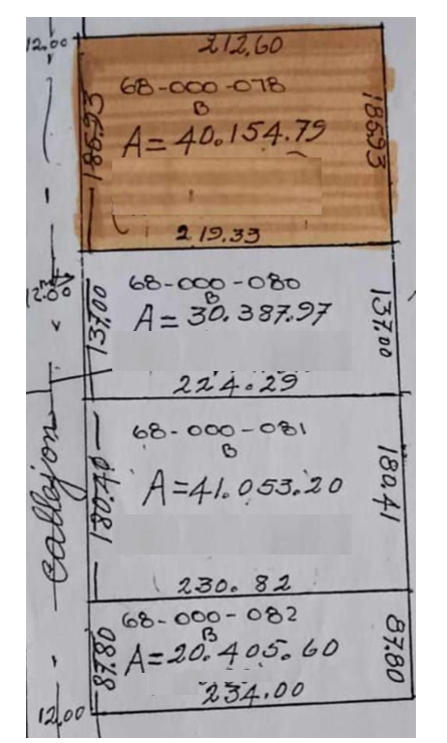 12.00
212.60
68-000-078
B
A=40.154.79
186.93
186.93
219.33
12.00
68-000-080
B
A=30.387.97
137.00
137.00
224.29
68-000-081
B
A=41.053.20
180.40
180.41
callejon
230.82
68-000-082
B
A=20.405.60
87.80
87.80
234.00
12.00